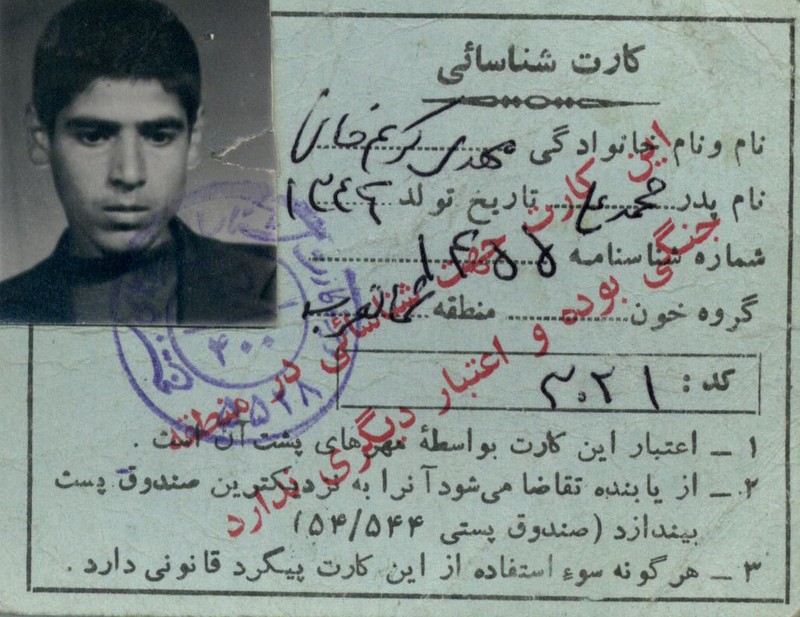 کارت شناسائی
نام و نام خانوادگی مهدی کریم خانی
نام پدر محمد علی تاریخ تولد ۱۳۴۶
شماره شناسنامه ۱۴۵۵
گروه خون منطقه شمالغرب
کد: ۳۰۲۱
۱ ــ اعتبار این کارت بواسطهٔ مهرهای پشت آن است .
۲ ــ از یابنده تقاضا می‌شود آنرا به نزدیکترین صندوق پست
بیندازد (صندوق پستی ۵۴/۵۴۴)
۳ ــ هرگونه سوء استفاده از این کارت پیگرد قانونی دارد .
این کارت جهت شناسائی در منطقه
جنگی بوده و اعتبار دیگری ندارد
۴۰۰